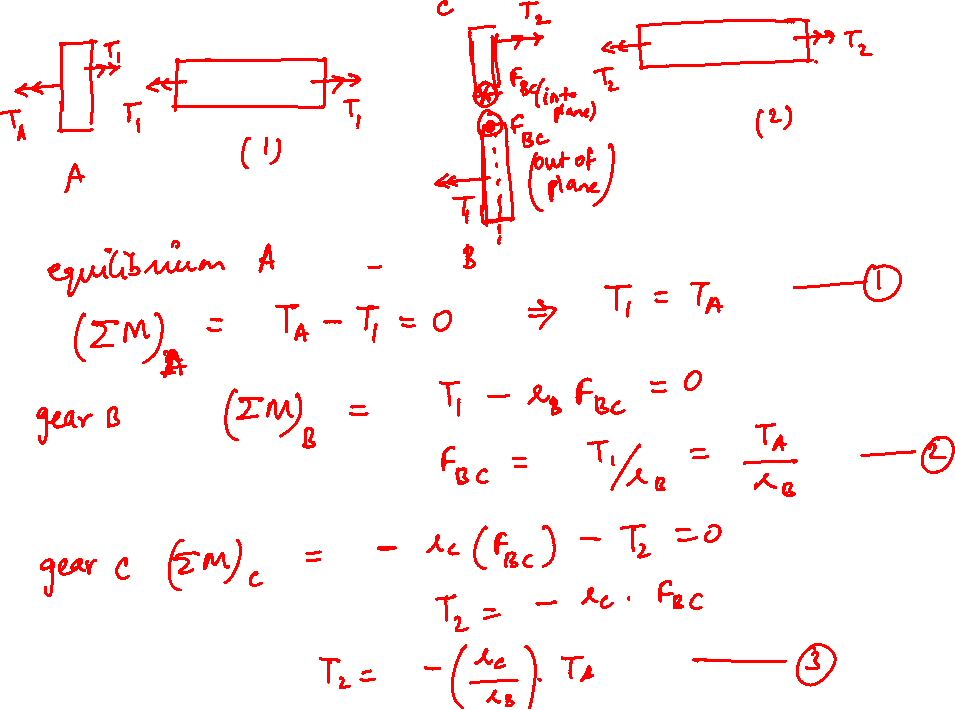 C T₂
T₁ T₂
T_A T₁ T₁ T₂
F_BC (into plane)
F_BC (out of plane)
A (1) (2)
T₁
B
equilibrium A -
(ΣM)_A = T_A - T₁ = 0 ⇒ T₁ = T_A —— ①
gear B (ΣM)_B = T₁ - r_B F_BC = 0
F_BC = T₁/r_B = T_A/r_B —— ②
gear C (ΣM)_C = - r_C (F_BC) - T₂ = 0
T₂ = - r_C . F_BC
T₂ = -(r_C/r_B). T_A —— ③